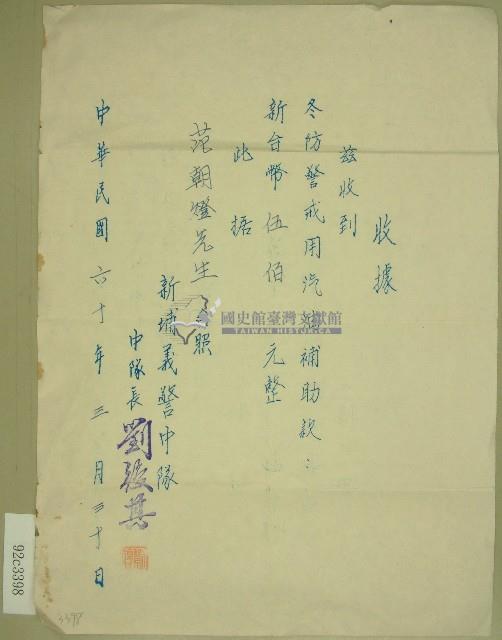 收據
茲收到
冬防警戒用汽油補助款：
新台幣伍佰 元整
此据
范朝燈先生 台照
新埔義警中隊
中隊長 劉
中華民國六十年三月三十日
國史館臺灣文獻館
TAIWAN HISTORICA
92c3398
3398